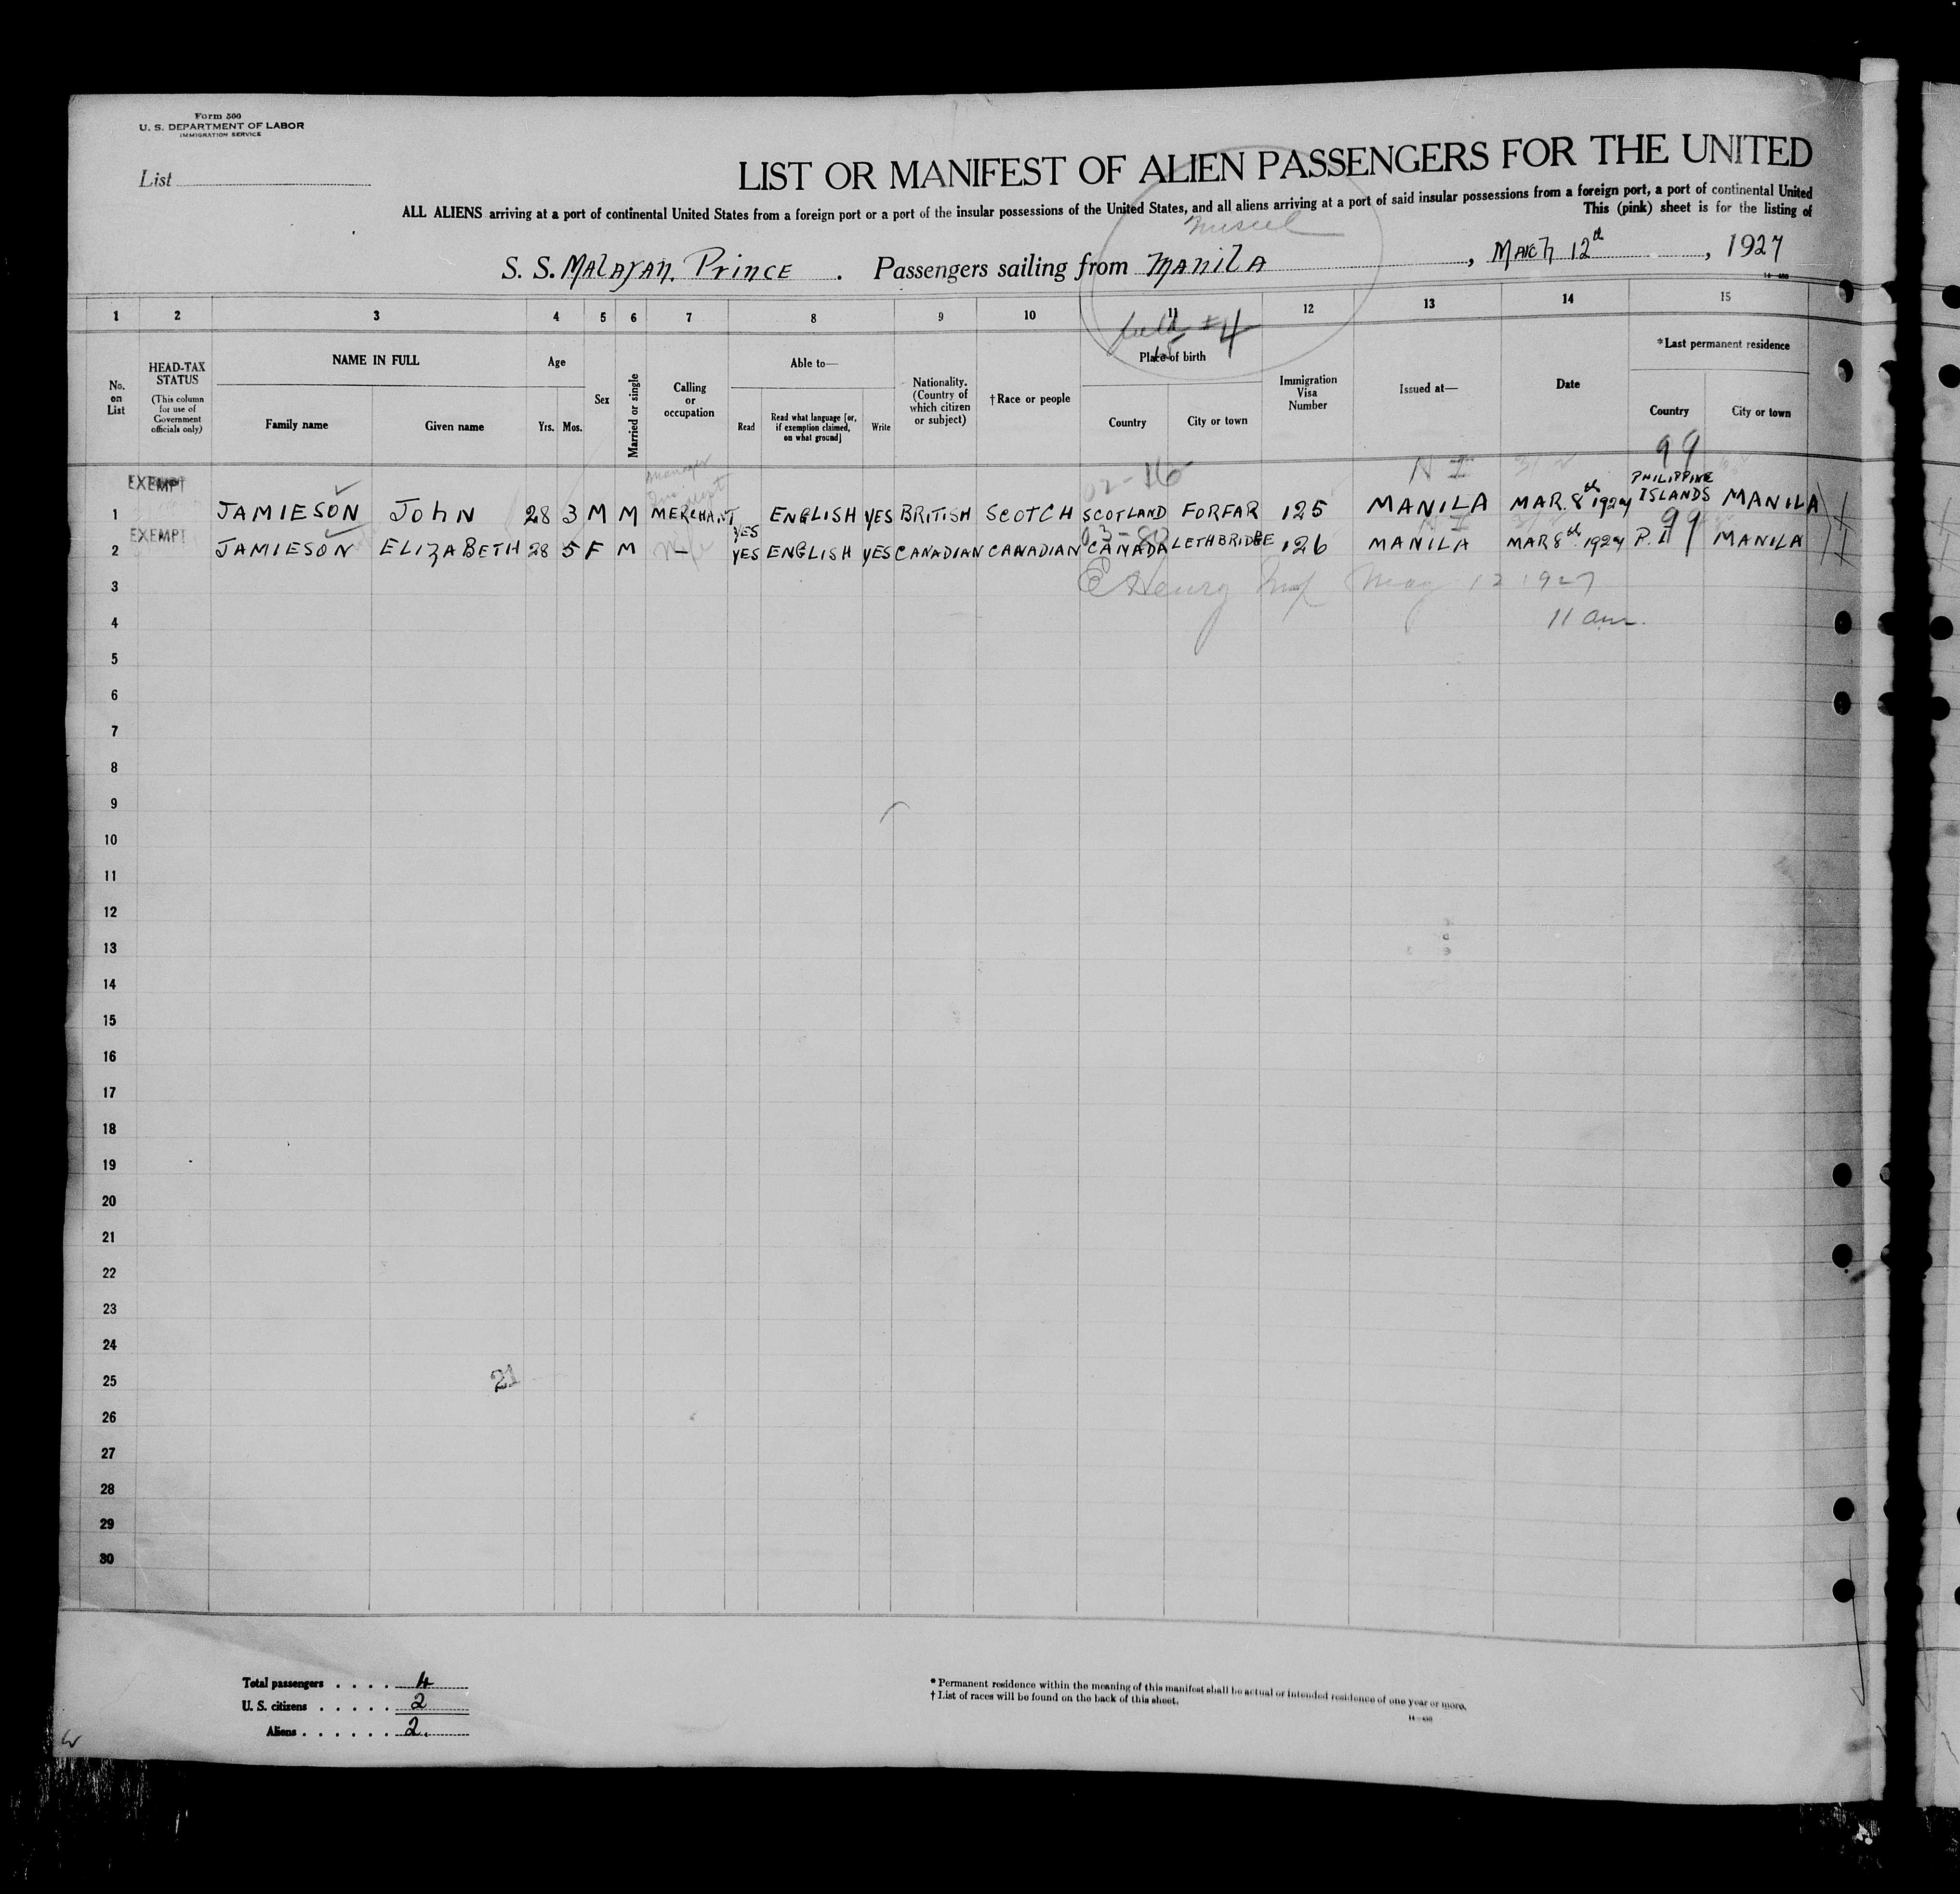 Form 500
U. S. DEPARTMENT OF LABOR
IMMIGRATION SERVICE
List
LIST OR MANIFEST OF ALIEN PASSENGERS FOR THE UNITED
ALL ALIENS arriving at a port of continental United States from a foreign port or a port of the insular possessions of the United States, and all aliens arriving at a port of said insular possessions from a foreign port, a port of continental United
This (pink) sheet is for the listing of
S. S. Malayan Prince. Passengers sailing from Manila, March 12th, 1927
1 2 3 4 5 6 7 8 9 10 11 12 13 14 15
#4
No. on List
HEAD-TAX STATUS (This column for use of Government officials only)
NAME IN FULL
Family name
Given name
Age
Yrs. Mos.
Sex
Married or single
Calling or occupation
Able to—
Read
Read what language [or, if exemption claimed, on what ground]
Write
Nationality. (Country of which citizen or subject)
†Race or people
Place of birth
Country
City or town
Immigration Visa Number
Issued at—
Date
*Last permanent residence
Country
City or town
99
manager
02-16 N I
1 EXEMPT JAMIESON JOHN 28 3 M M MERCHANT YES ENGLISH YES BRITISH SCOTCH SCOTLAND FORFAR 125 MANILA MAR. 8th 1927 PHILIPPINE ISLANDS MANILA
2 EXEMPT JAMIESON ELIZABETH 28 5 F M — YES ENGLISH YES CANADIAN CANADIAN CANADA LETHBRIDGE 126 MANILA MAR 8th 1927 P. 99 MANILA
E Henry May 12 1927
11 am.
3
4
5
6
7
8
9
10
11
12
13
14
15
16
17
18
19
20
21
22
23
24
25
21
26
27
28
29
30
Total passengers . . . . 4
U. S. citizens . . . . . 2
Aliens . . . . . . 2.
* Permanent residence within the meaning of this manifest shall be actual or intended residence of one year or more.
† List of races will be found on the back of this sheet.